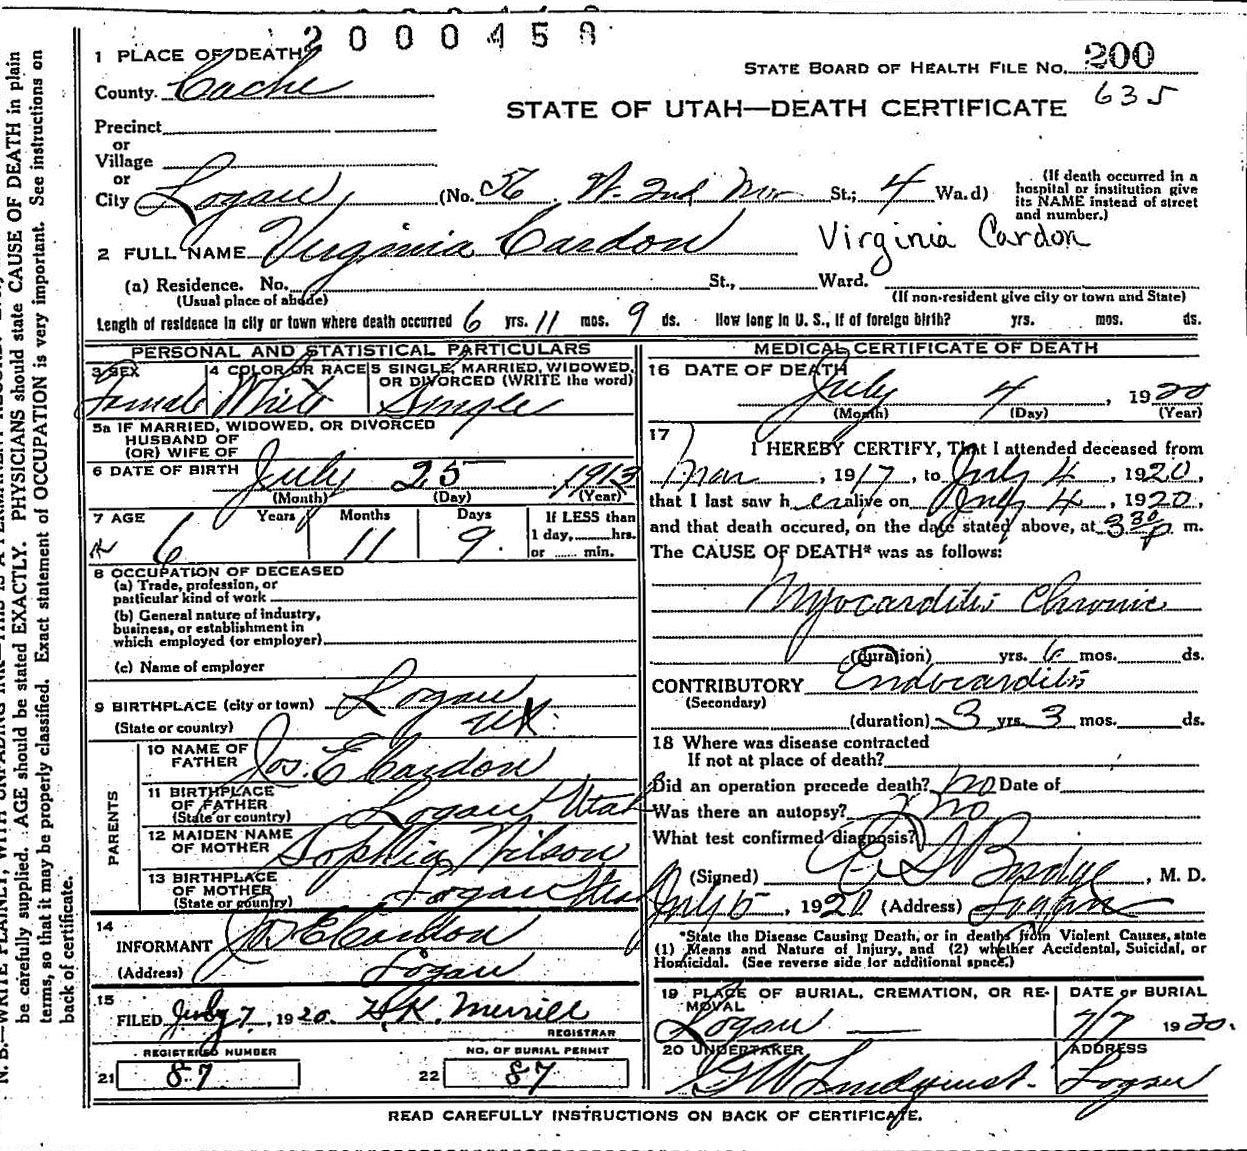 2 0 0 0 4 5 8
1 PLACE OF DEATH
County. Cache
STATE BOARD OF HEALTH FILE NO. 200
635
STATE OF UTAH—DEATH CERTIFICATE
Precinct
or
Village
or
City Logan (No. 56 W. 2nd Nor St.; 4 Wa.d)
(If death occurred in a hospital or institution give its NAME instead of street and number.)
2 FULL NAME Virginia Cardon Virginia Cardon
(a) Residence. No. St., Ward.
(Usual place of abode) (If non-resident give city or town and State)
Length of residence in city or town where death occurred 6 yrs. 11 mos. 9 ds. How long in U. S., if of foreign birth? yrs. mos. ds.
PERSONAL AND STATISTICAL PARTICULARS
3 SEX Female
4 COLOR OR RACE White
5 SINGLE, MARRIED, WIDOWED, OR DIVORCED (WRITE the word) Single
5a IF MARRIED, WIDOWED, OR DIVORCED
HUSBAND OF
(OR) WIFE OF
6 DATE OF BIRTH July 25 1913
(Month) (Day) (Year)
7 AGE Years Months Days If LESS than
6 11 9 1 day, hrs.
or min.
8 OCCUPATION OF DECEASED
(a) Trade, profession, or
particular kind of work
(b) General nature of industry,
business, or establishment in
which employed (or employer)
(c) Name of employer
9 BIRTHPLACE (city or town) Logan
(State or country) Ut.
PARENTS
10 NAME OF FATHER Jos. E Cardon
11 BIRTHPLACE OF FATHER (State or country) Logan Utah
12 MAIDEN NAME OF MOTHER Sophia Wilson
13 BIRTHPLACE OF MOTHER (State or country) Logan Utah
14
INFORMANT Jos E Cardon
(Address) Logan
15
FILED July 7, 1920. H.K. Merrill
REGISTRAR
REGISTERED NUMBER NO. OF BURIAL PERMIT
21 87 22 87
MEDICAL CERTIFICATE OF DEATH
16 DATE OF DEATH
July 4, 1920
(Month) (Day) (Year)
17
I HEREBY CERTIFY, That I attended deceased from
Mar, 1917, to July 4, 1920,
that I last saw h er alive on July 4, 1920,
and that death occured, on the date stated above, at 3 30 P m.
The CAUSE OF DEATH* was as follows:
Myocarditis Chronic
(duration) yrs. 6 mos. ds.
CONTRIBUTORY Endocarditis
(Secondary)
(duration) 3 yrs. 3 mos. ds.
18 Where was disease contracted
If not at place of death?
Did an operation precede death? no Date of
Was there an autopsy? no
What test confirmed diagnosis?
(Signed) , M. D.
July 5, 1920 (Address) Logan
*State the Disease Causing Death, or in deaths from Violent Causes, state
(1) Means and Nature of Injury, and (2) whether Accidental, Suicidal, or
Homicidal. (See reverse side for additional space.)
19 PLACE OF BURIAL, CREMATION, OR REMOVAL DATE OF BURIAL
Logan 7/7 1920.
20 UNDERTAKER ADDRESS
G W Lindquist. Logan
READ CAREFULLY INSTRUCTIONS ON BACK OF CERTIFICATE.
be carefully supplied. AGE should be stated EXACTLY. PHYSICIANS should state CAUSE OF DEATH in plain
terms, so that it may be properly classified. Exact statement of OCCUPATION is very important. See instructions on
back of certificate.